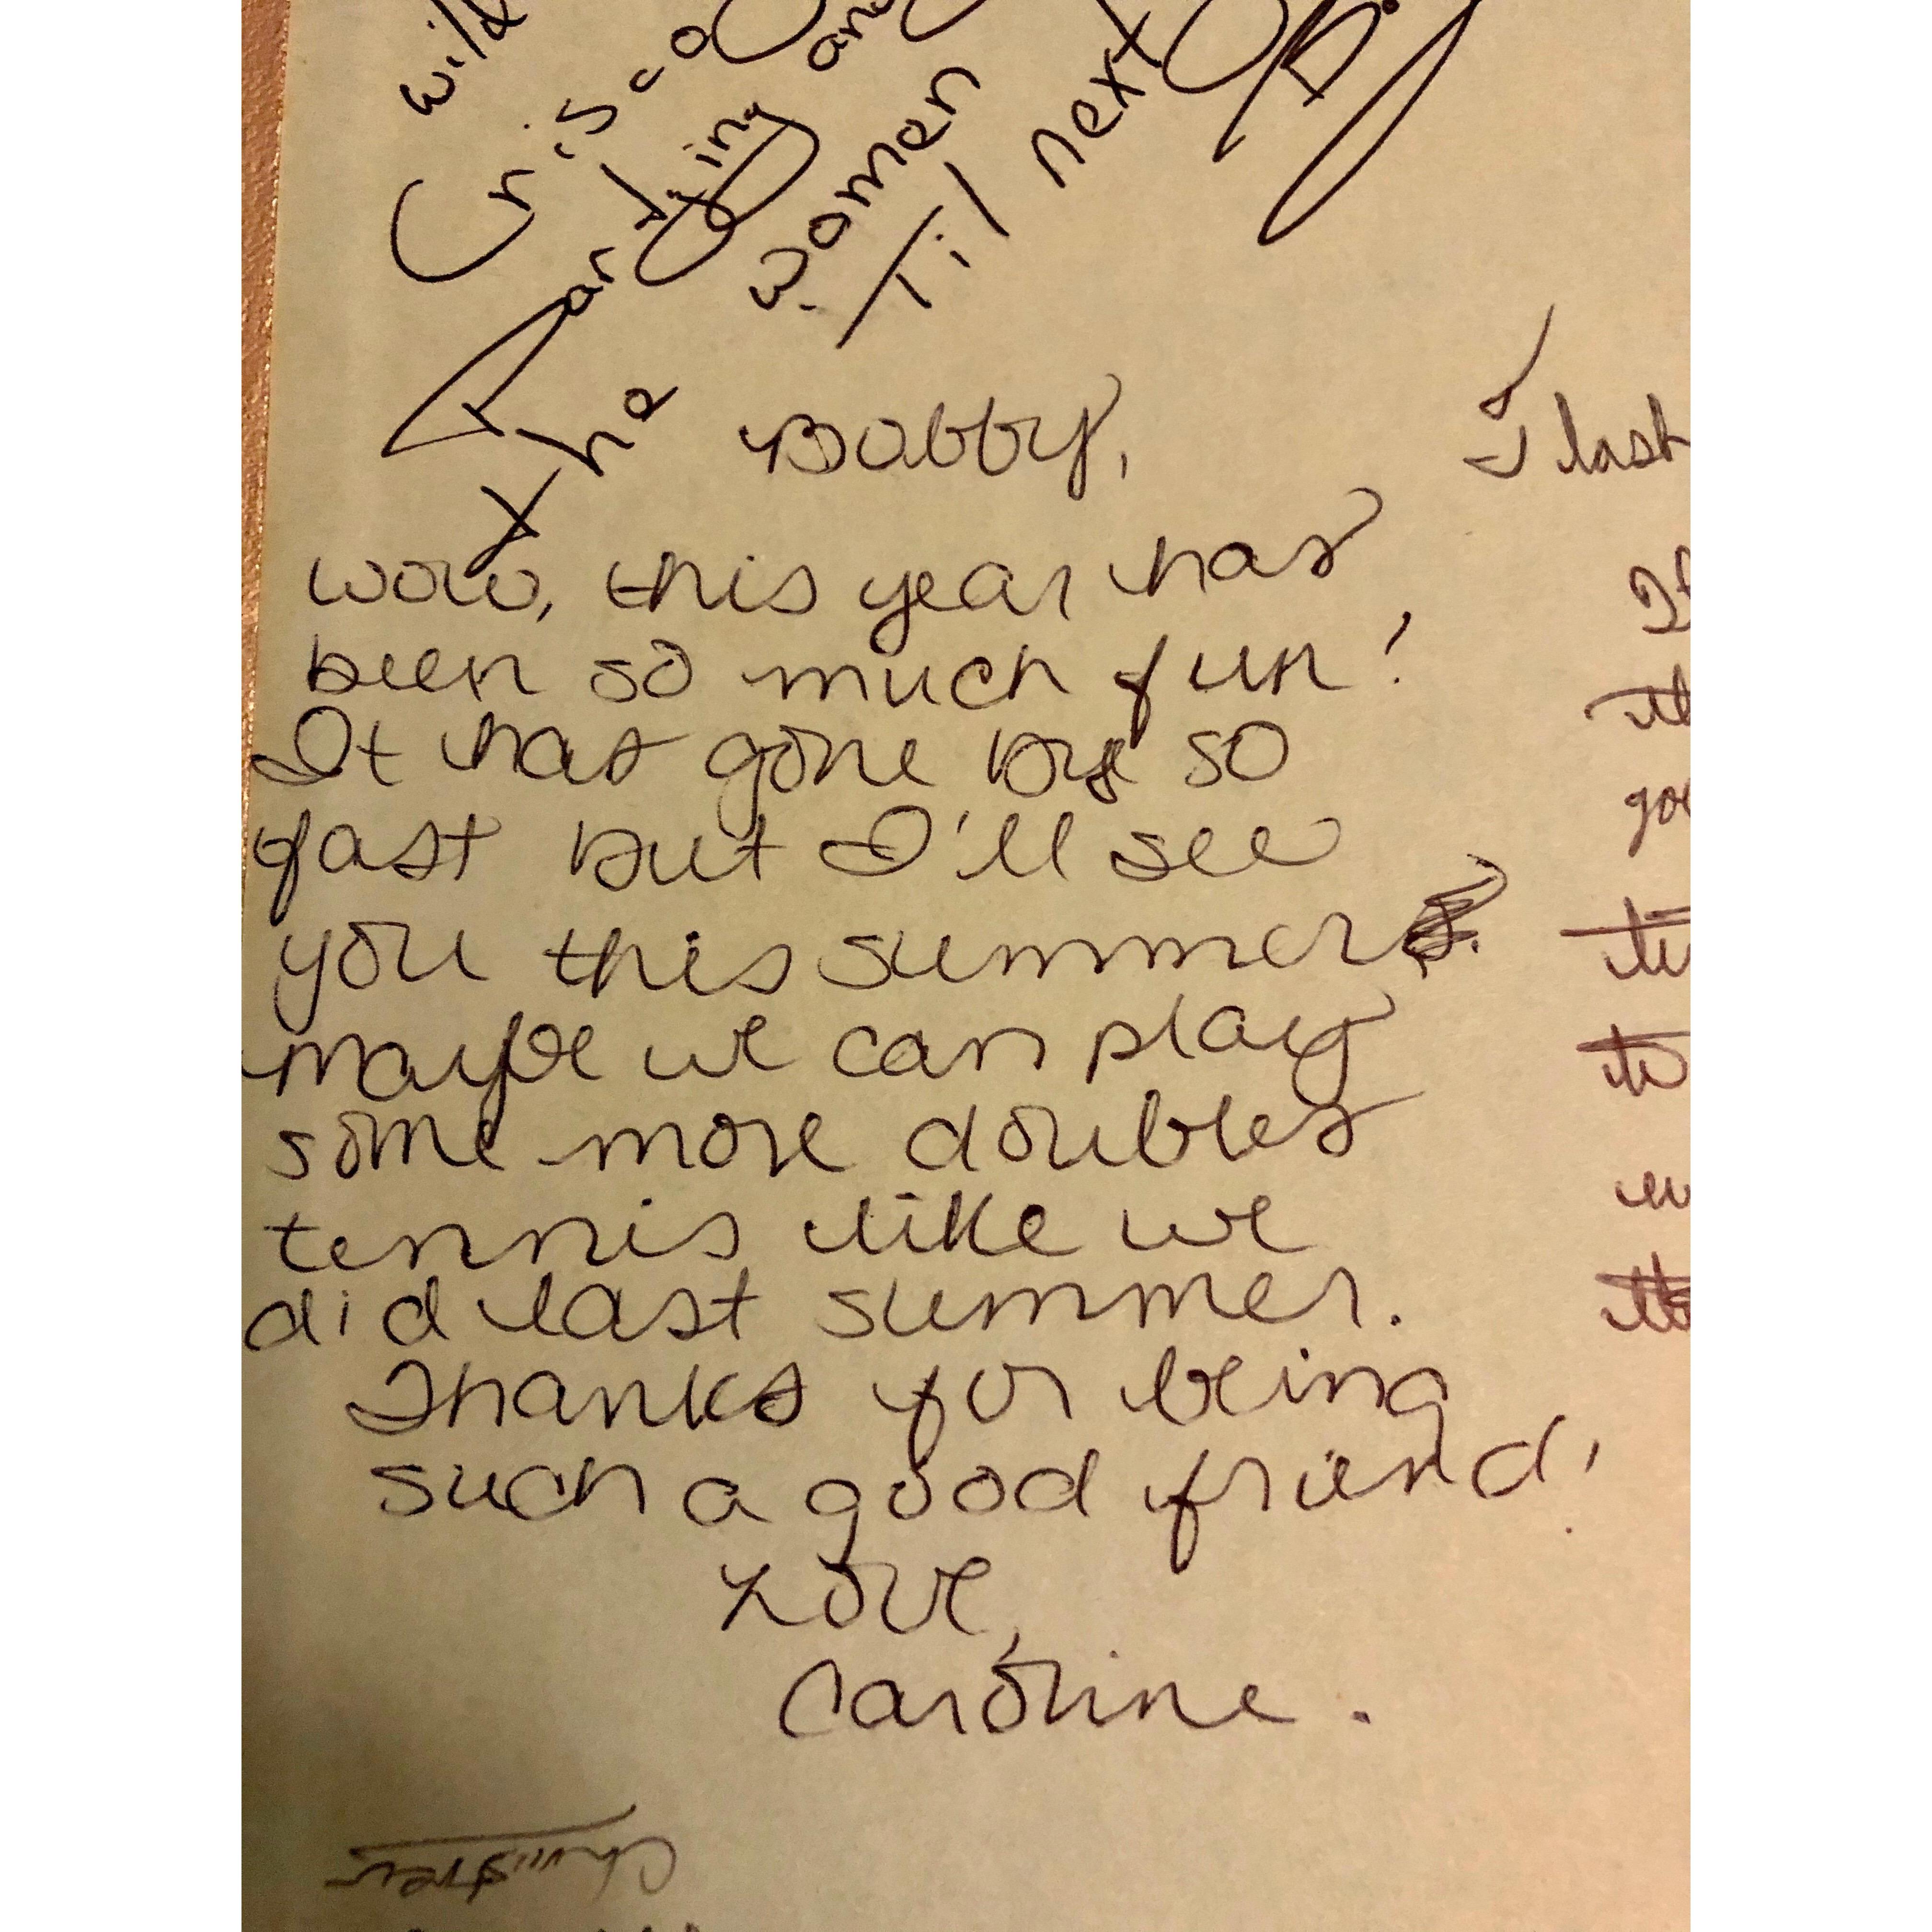 wild
Crisco
and
Partying
the women
Til next
Bobby,
wow, this year has
been so much fun!
It has gone bye so
fast but I'll see
you this summer.
maybe we can play
some more doubles
tennis like we
did last summer.
Thanks for being
such a good friend!
Love,
Caroline.
I last
Christer